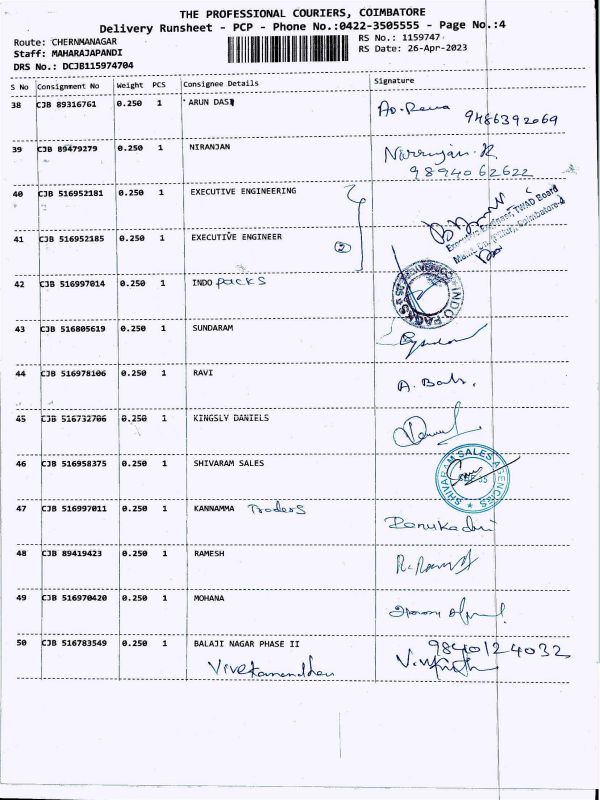 THE PROFESSIONAL COURIERS, COIMBATORE
Delivery Runsheet - PCP - Phone No.:0422-3505555 - Page No.:4
Route: CHERNMANAGAR
Staff: MAHARAJAPANDI
DRS No.: DCJB115974704
RS No.: 1159747
RS Date: 26-Apr-2023
S No Consignment No Weight PCS Consignee Details Signature
38 CJB 89316761 0.250 1 ARUN DAS
9486392069
39 CJB 89479279 0.250 1 NIRANJAN Niranjan.R
9894062622
40 CJB 516952181 0.250 1 EXECUTIVE ENGINEERING
Executive Engineer, TWAD Board
41 CJB 516952185 0.250 1 EXECUTIVE ENGINEER 2
42 CJB 516997014 0.250 1 INDO packs
INDO PACKS
43 CJB 516805619 0.250 1 SUNDARAM
44 CJB 516978106 0.250 1 RAVI
45 CJB 516732706 0.250 1 KINGSLY DANIELS
46 CJB 516958375 0.250 1 SHIVARAM SALES
SHIVARAM SALES AGENCIES
47 CJB 516997011 0.250 1 KANNAMMA Traders
48 CJB 89419423 0.250 1 RAMESH
49 CJB 516970420 0.250 1 MOHANA
50 CJB 516783549 0.250 1 BALAJI NAGAR PHASE II 9840124032